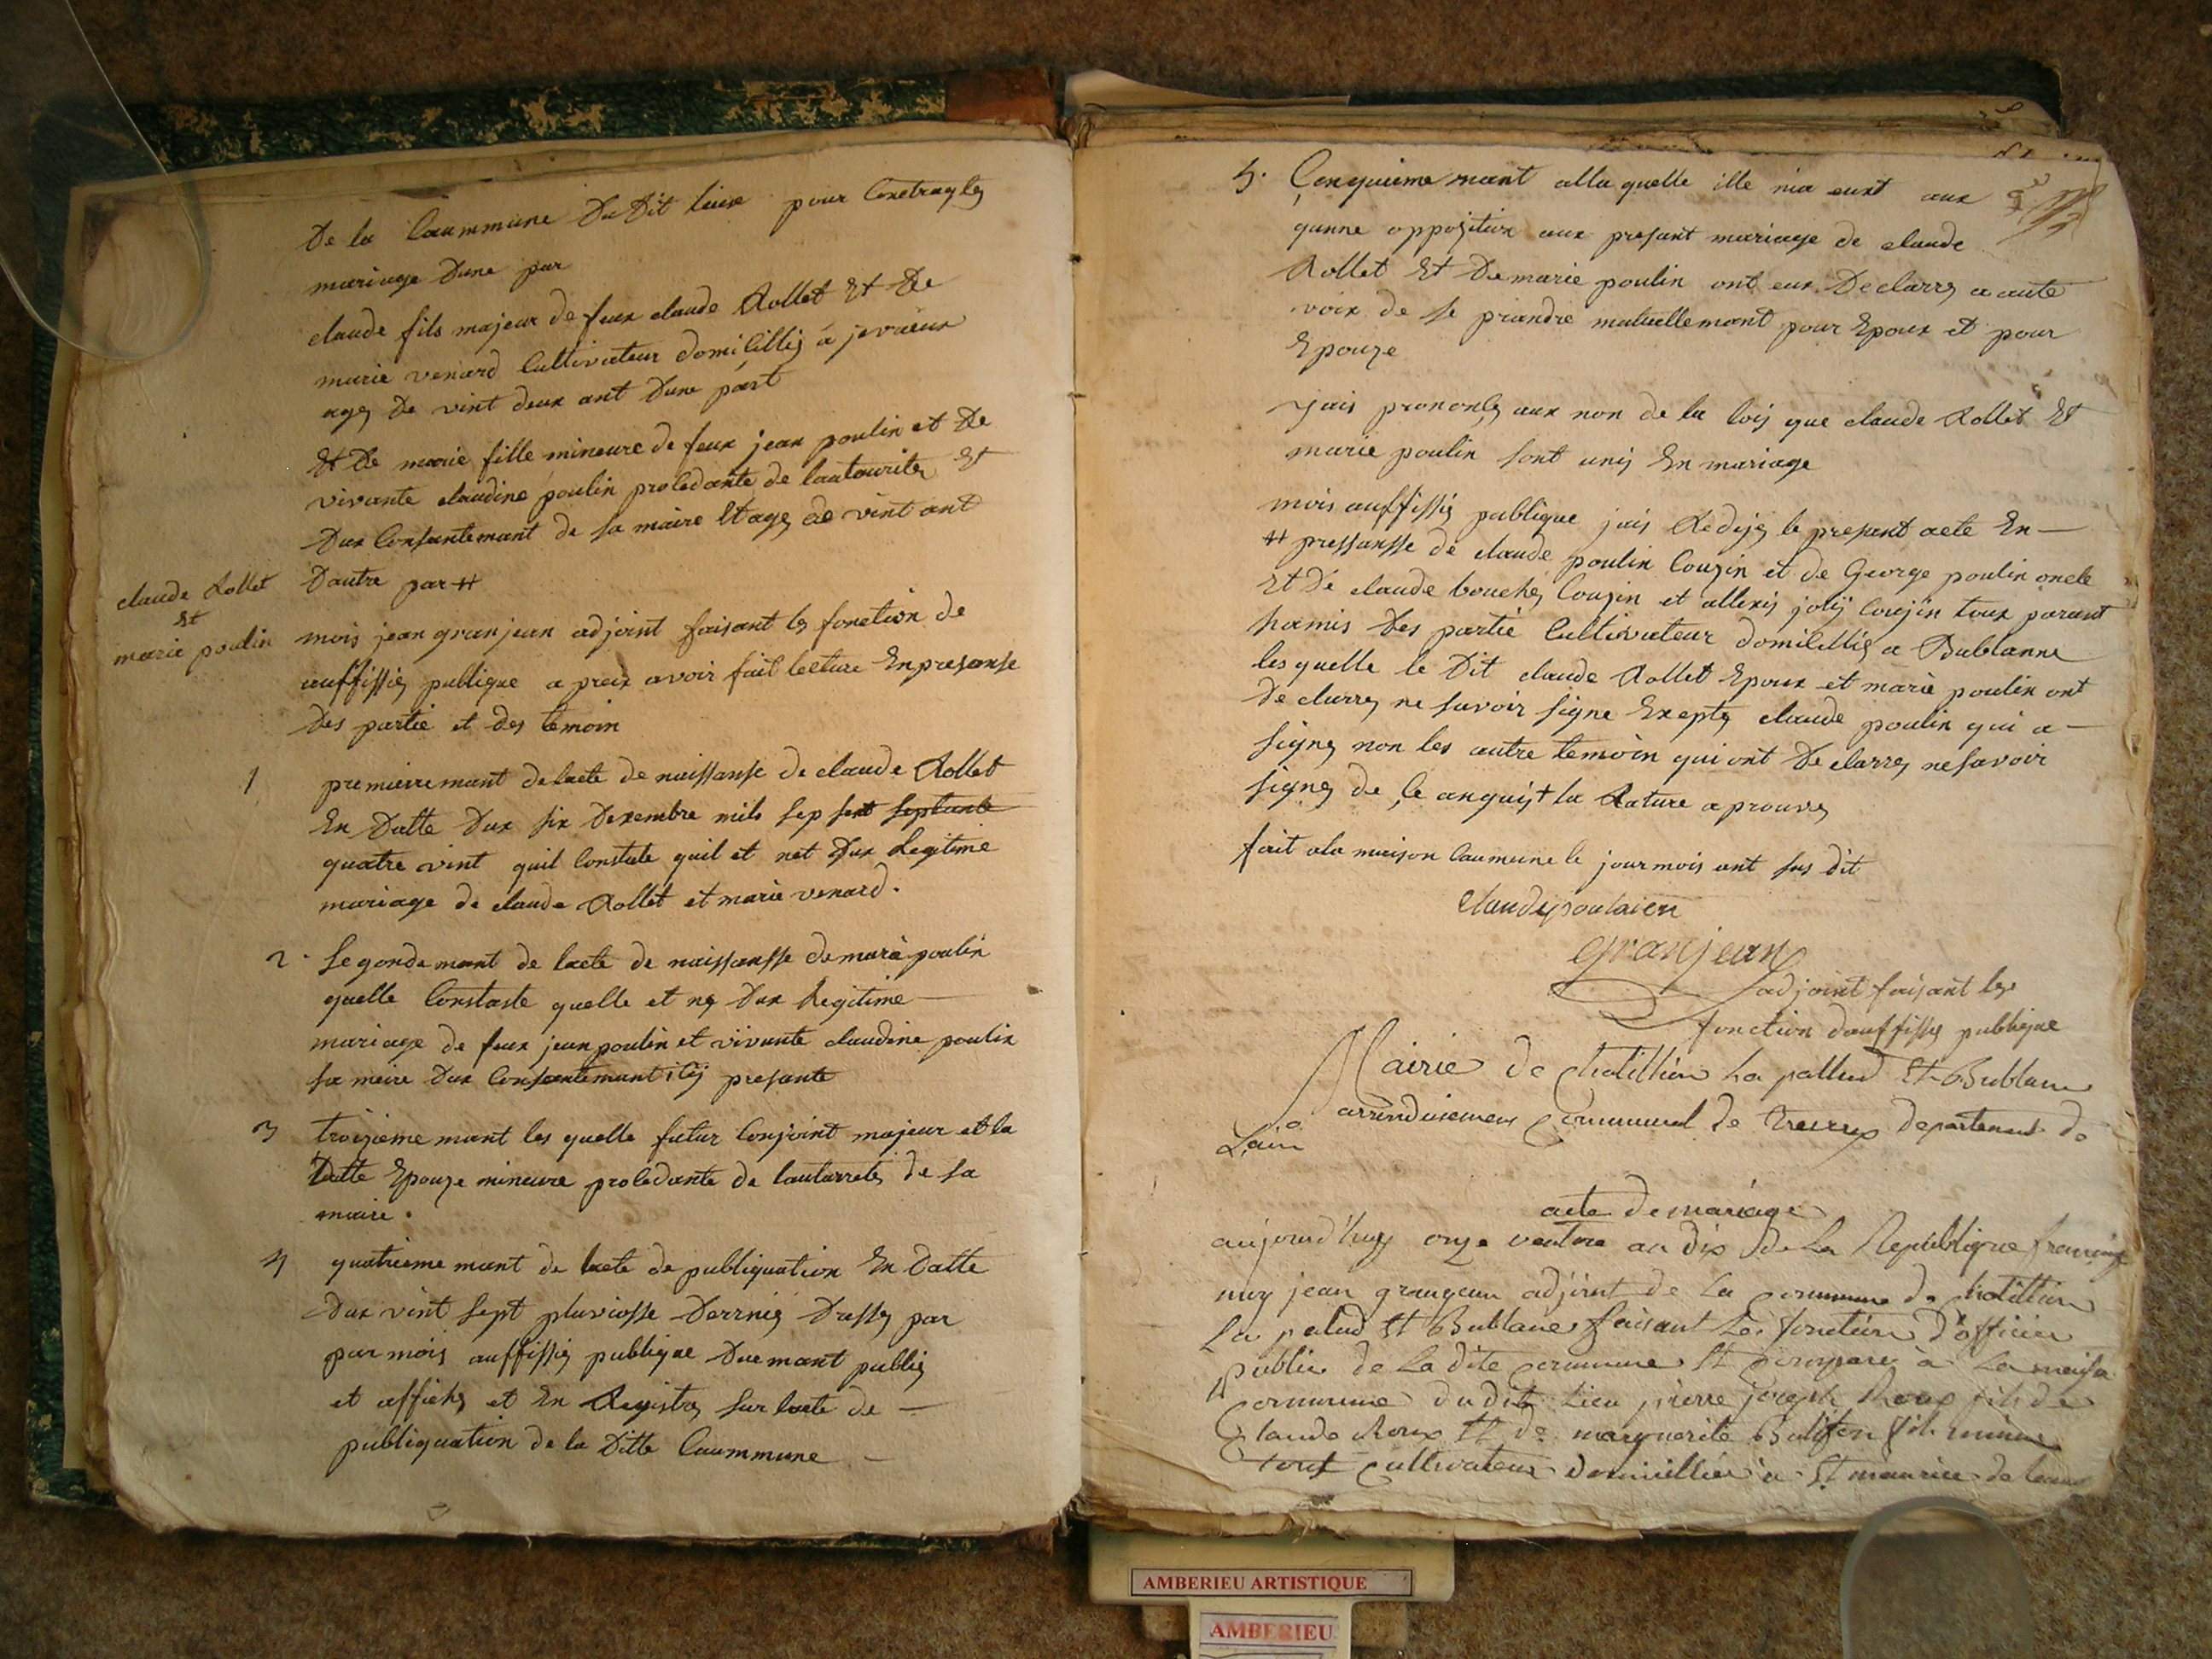 De la Caummune Du Dit lieux pour Contragtes
mariage Dune par
claude fils majeur de feux claude Rollet Et De
marie venard Cultivateur domicillies à jevrieux
ages De vint deux ant Dune part
Et De marie fille mineure de feux jean poulin et De
vivante claudine poulin procedante de lautourites Et
Dux Consantemant de sa maire Etages de vint ant
Dautre par #
claude Rollet
Et
marie poulin
mois jean granjean adjoint faisant les fonction de
auffissies publique a preix avoir fait lecture En presansse
Des partie et des temoin
1 premierremant de lacte de naissansse de claude Rollet
En Datte Dux six Desembre mils sep sent septante
quatre vint quil Constate quil et net Dux Legitime
mariage de claude Rollet et marie venard.
2. segondemant de lacte de naissansse de marie poulin
quelle Constaste quelle et nes Dux Legitime
mariage de feux jean poulin et vivante claudine poulin
sa meire Dux Consantemant icy presante
3 troizieme mant les quelle futur Conjoint majeur et la
Ditte Epouze mineure procedante de lautorretes de sa
maire.
4 quatrieme mant de lacte de publiquation En Datte
Dux vint sept pluviosse Dernies Dresses par
par mois auffissies publique Duemant publies
et affiches et En Registres sur lacte de
publiquation de la Ditte Caummune
5. Cenquieme mant alla quelle ille nia eust aux
qunne oppozition aux presant mariage de claude
Rollet Et De marie poulin ont eux Declarres a aute
voix de se prandre mutuellemant pour Epoux et pour
Epouze
jais prononces aux non de la lois que claude Rollet Et
marie poulin sont unis En mariage
mois auffissies publique jais Rediges le presant acte En
# pressansse de claude poulin Couzin et de George poulin oncle
Et De claude bouches Couzin et allexis joly Couzin toux parant
hamis Des partie Cultivateur domicillies a Bublanne
les quelle le Dit claude Rollet Epoux et marie poulin ont
De clarres ne savoir signe Exeptes claude poulin qui a
signes non les autre temoin qui ont De clarres ne savoir
signes de ce anquist la Rature aprouves
fait ala maison Caumune le jour mois ant sus dit
claude poulaien
granjean
adjoint faisant les
fonction dauffissies publique
Mairie de Chatillion La pallud Et Bublane
arrondissement Communal de Trevoux departement de
Lain
acte de mariage
aujourd'huy onze ventose an dix de la Republique francaise
moy jean grangean adjoint de la Commune de Chatillion
La palud Et Bublane faisant les fonction D'officier
public de la dite Commune Et Comparus à la maison
Commune du dit lieu pierre joseph Roux fils de
Claude Roux Et de marguerite fils mineur
tous Cultivateur domicillies à St maurice de
AMBERIEU ARTISTIQUE
AMBERIEU